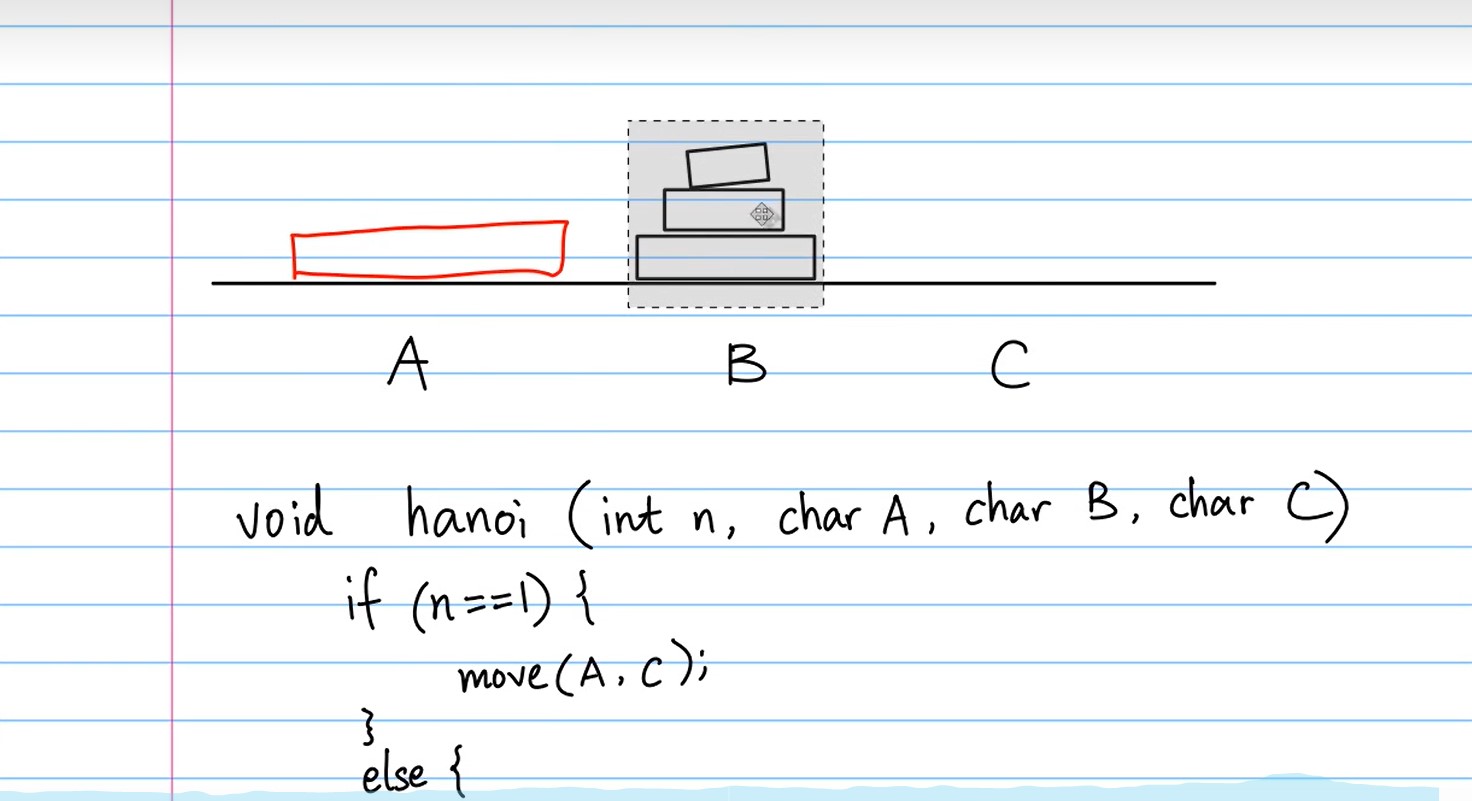 A B C
void hanoi (int n, char A, char B, char C)
if (n==1) {
move(A, C);
}
else {